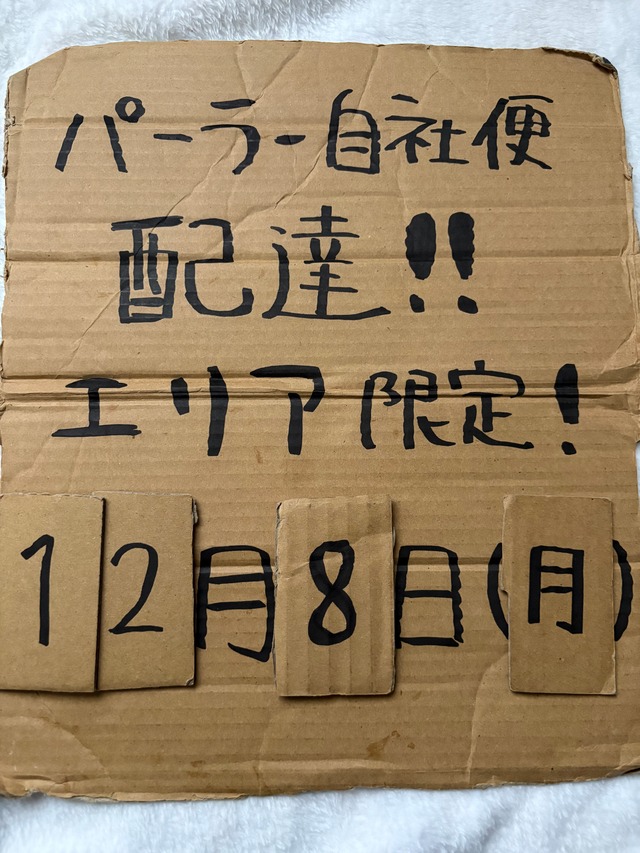 パーラー自社便
配達!!
エリア限定!
12月8日(月)